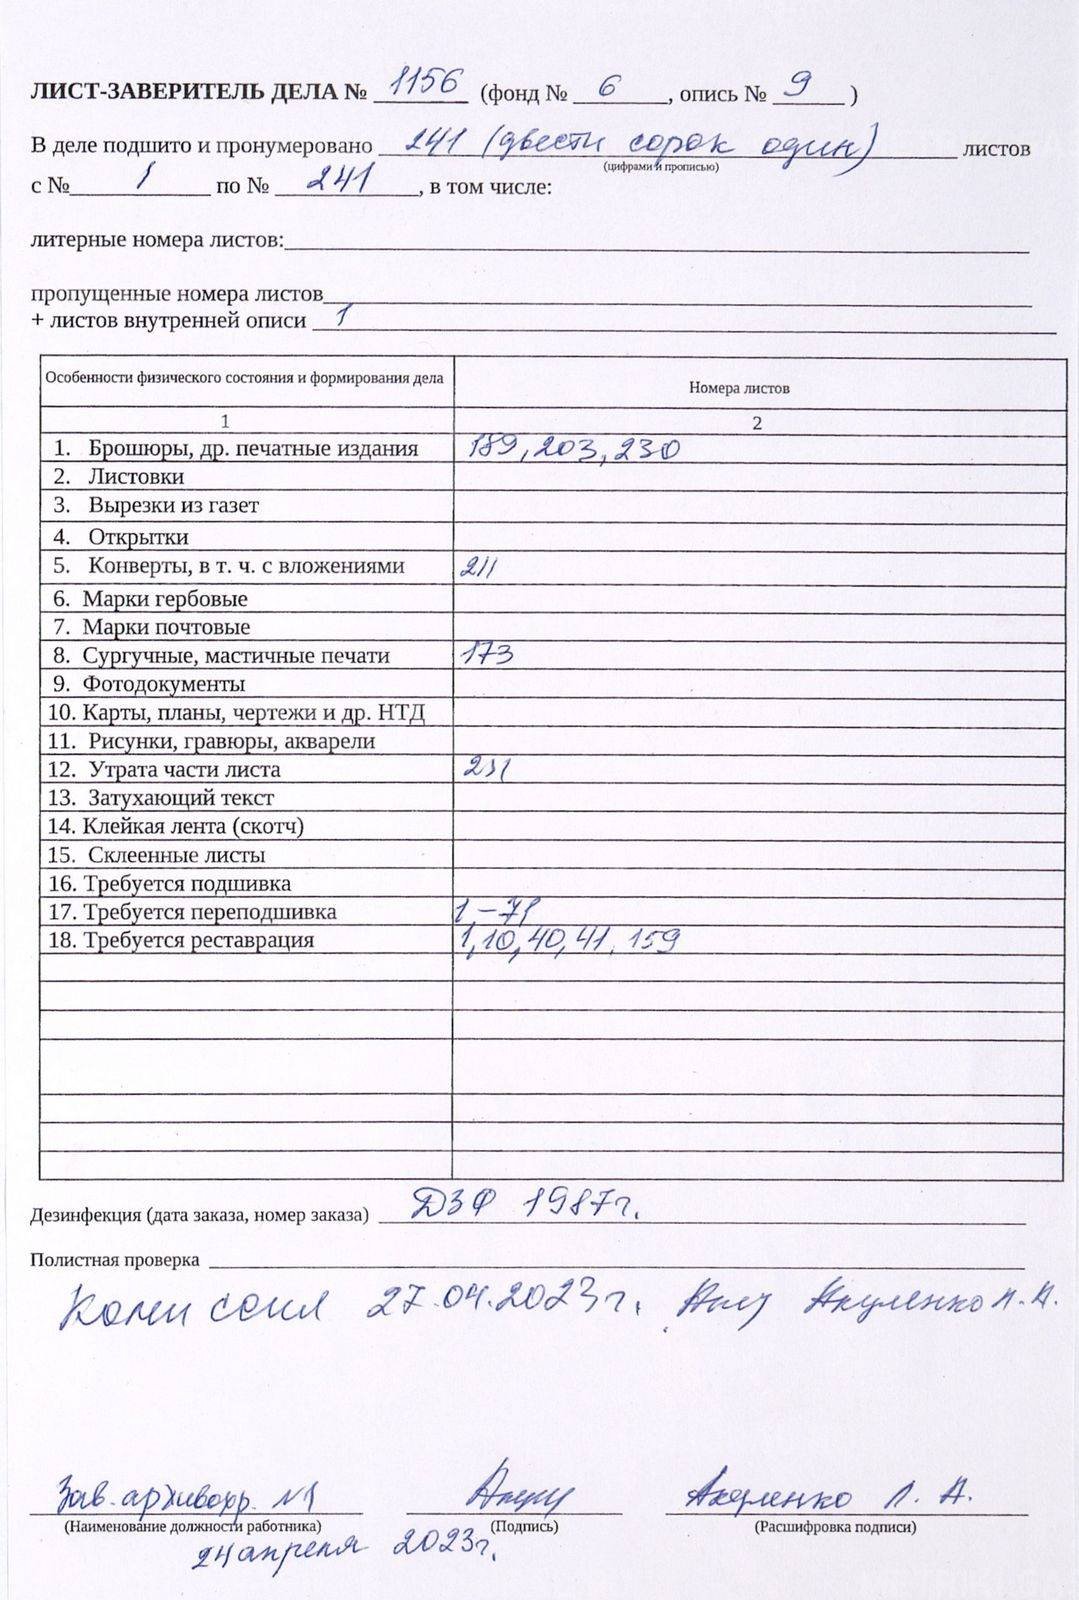 ЛИСТ-ЗАВЕРИТЕЛЬ ДЕЛА № 1156 (фонд № 6, опись № 9)
В деле подшито и пронумеровано 241 (двести сорок один) листов
(цифрами и прописью)
с № 1 по № 241, в том числе:
литерные номера листов:
пропущенные номера листов
+ листов внутренней описи 1
Особенности физического состояния и формирования дела Номера листов
1 2
1. Брошюры, др. печатные издания 189, 203, 230
2. Листовки
3. Вырезки из газет
4. Открытки
5. Конверты, в т. ч. с вложениями 211
6. Марки гербовые
7. Марки почтовые
8. Сургучные, мастичные печати 173
9. Фотодокументы
10. Карты, планы, чертежи и др. НТД
11. Рисунки, гравюры, акварели
12. Утрата части листа 231
13. Затухающий текст
14. Клейкая лента (скотч)
15. Склеенные листы
16. Требуется подшивка
17. Требуется переподшивка 1-71
18. Требуется реставрация 1, 10, 40, 41, 159
Дезинфекция (дата заказа, номер заказа) ДЗФ 1987г.
Полистная проверка
Комиссия 27.04.2023г. Акуленко Л. А.
Зав. архивохр. №1 Акуленко Л. А.
(Наименование должности работника) (Подпись) (Расшифровка подписи)
24 апреля 2023г.